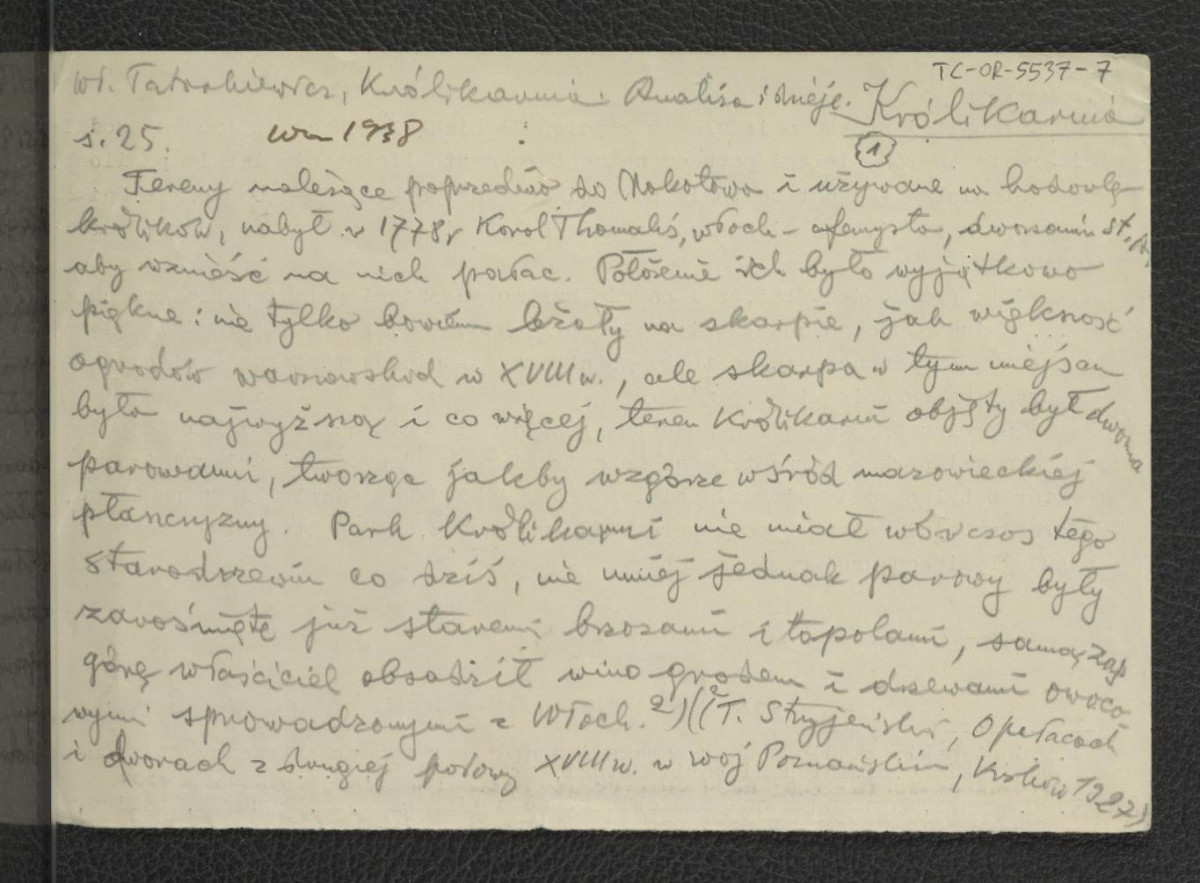 TC-OR-5537-7
Wł. Tatarkiewicz, Królikarnia. Analiza i dzieje. Królikarnia
s. 25. 1938
1
Tereny należące poprzednio do Mokotowa i używane na hodowlę
królików, nabył w 1778 r Karol Thomatis, włoch - dworzanin St. A,
aby wznieść na nich pałac. Położenie ich było wyjątkowo
piękne: nie tylko bowiem leżały na skarpie, jak większość
ogrodów warszawskich w XVIII w., ale skarpa w tym miejscu
była najwyższą i co więcej, teren Królikarni objęty był dwoma
parowami, tworząc jakby wzgórze wśród mazowieckiej
płaszczyzny. Park Królikarni nie miał wówczas tego
starodrzewiu co dziś, nie mniej jednak parowy były
zarośnięte już staremi brzozami i topolami, samą zaś
górę właściciel obsadził winogradem i drzewami owoco-
wymi sprowadzonymi z Włoch. 2) ((2 T. Stryjeński, O pałacach
i dworach z drugiej połowy XVIII w. w woj Poznańskim, Kraków 1927)